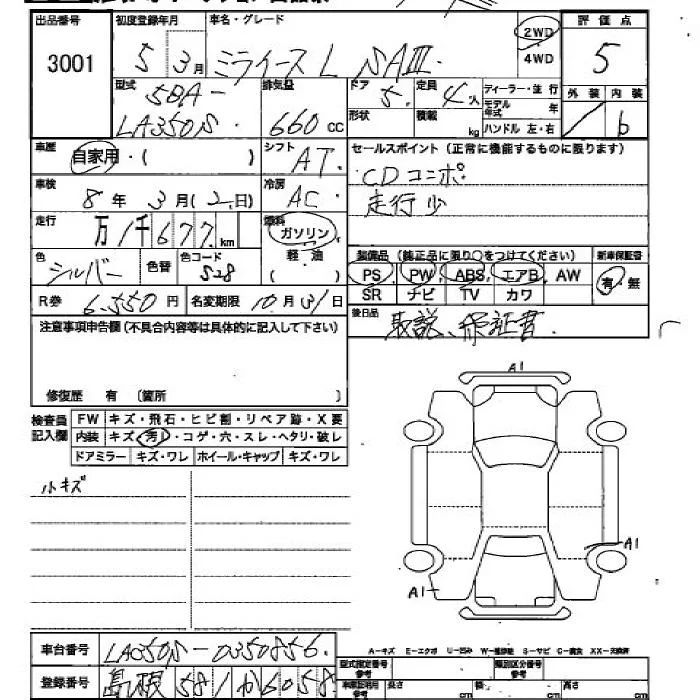 出品番号 初度登録年月 車名・グレード 評価点
3001 5 3月 ミライース L SAⅢ 2WD 4WD 5
型式 排気量 ドア 定員 ディーラー・並行 外装 内装
5BA- 5 4人 モデル年式 年
LA350S 660 cc 形状 積載 kg ハンドル 左・右 6
車歴 自家用・( ) シフト AT セールスポイント(正常に機能するものに限ります)
車検 8年3月(2日) 冷房 AC CDコンポ
走行 万1千677km 燃料 ガソリン 走行少
軽油
色 シルバー 色替 色コード S28 ( ) 装備品(純正品に限り○をつけてください) 新車保証書
PS PW ABS エアB AW 有・無
R券 6,550円 名変期限 10月31日 SR ナビ TV カワ
注意事項申告欄(不具合内容等は具体的に記入して下さい) 後日品 取説、保証書
修復歴 有 〔箇所 〕
検査員記入欄 FW キズ・飛石・ヒビ割・リペア跡・X要
内装 キズ・汚れ・コゲ・穴・スレ・ヘタリ・破レ
ドアミラー キズ・ワレ ホイール・キャップ キズ・ワレ
小キズ
A1
A1
A1
A-キズ E-エクボ U-凹み W-補修跡 S-サビ C-腐食 XX-交換済
車台番号 LA350S-0350856 型式指定番号 参考 類別区分番号 参考
登録番号 島根 581 か 6058 車庫証明用 参考 長さ cm 幅 cm 高さ cm